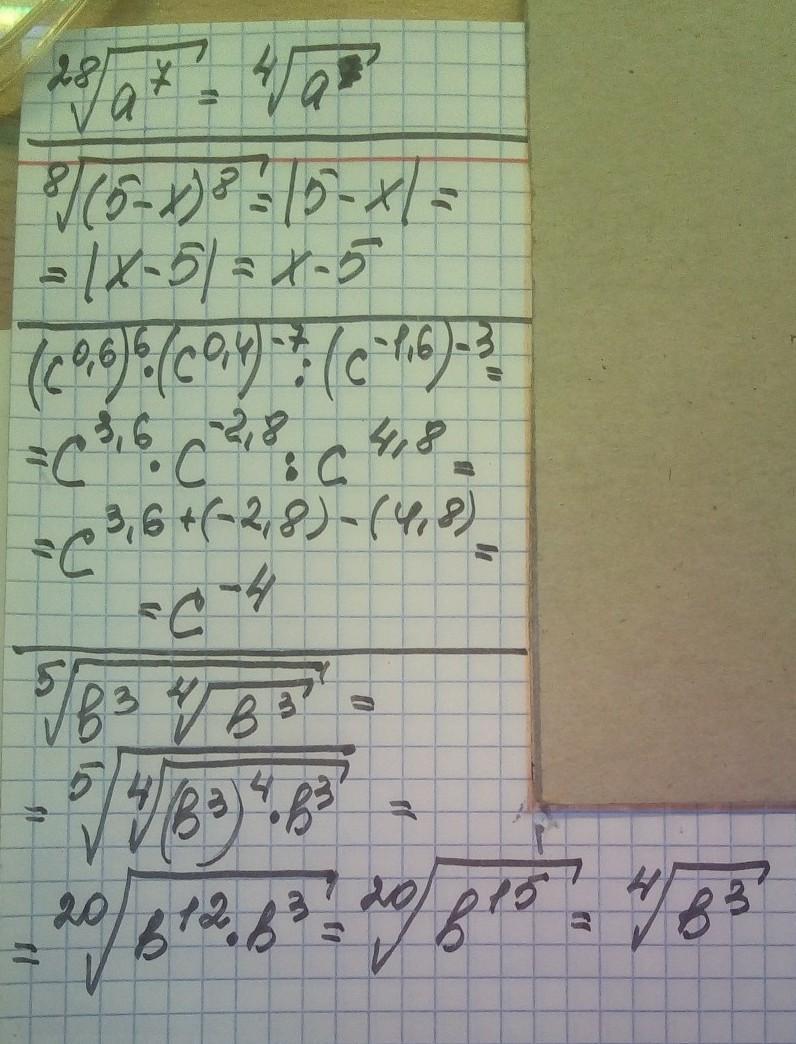 ²⁸√(a⁷) = ⁴√a
⁸√((5-x)⁸) = |5-x| =
= |x-5| = x-5
(c^0,6)^6 · (c^0,4)^-7 : (c^-1,6)^-3 =
= c^3,6 · c^-2,8 : c^4,8 =
= c^3,6+(-2,8)-(4,8) =
= c^-4
⁵√(в³ ⁴√(в³)) =
= ⁵√(⁴√((в³)⁴·в³)) =
= ²⁰√(в¹²·в³) = ²⁰√(в¹⁵) = ⁴√(в³)